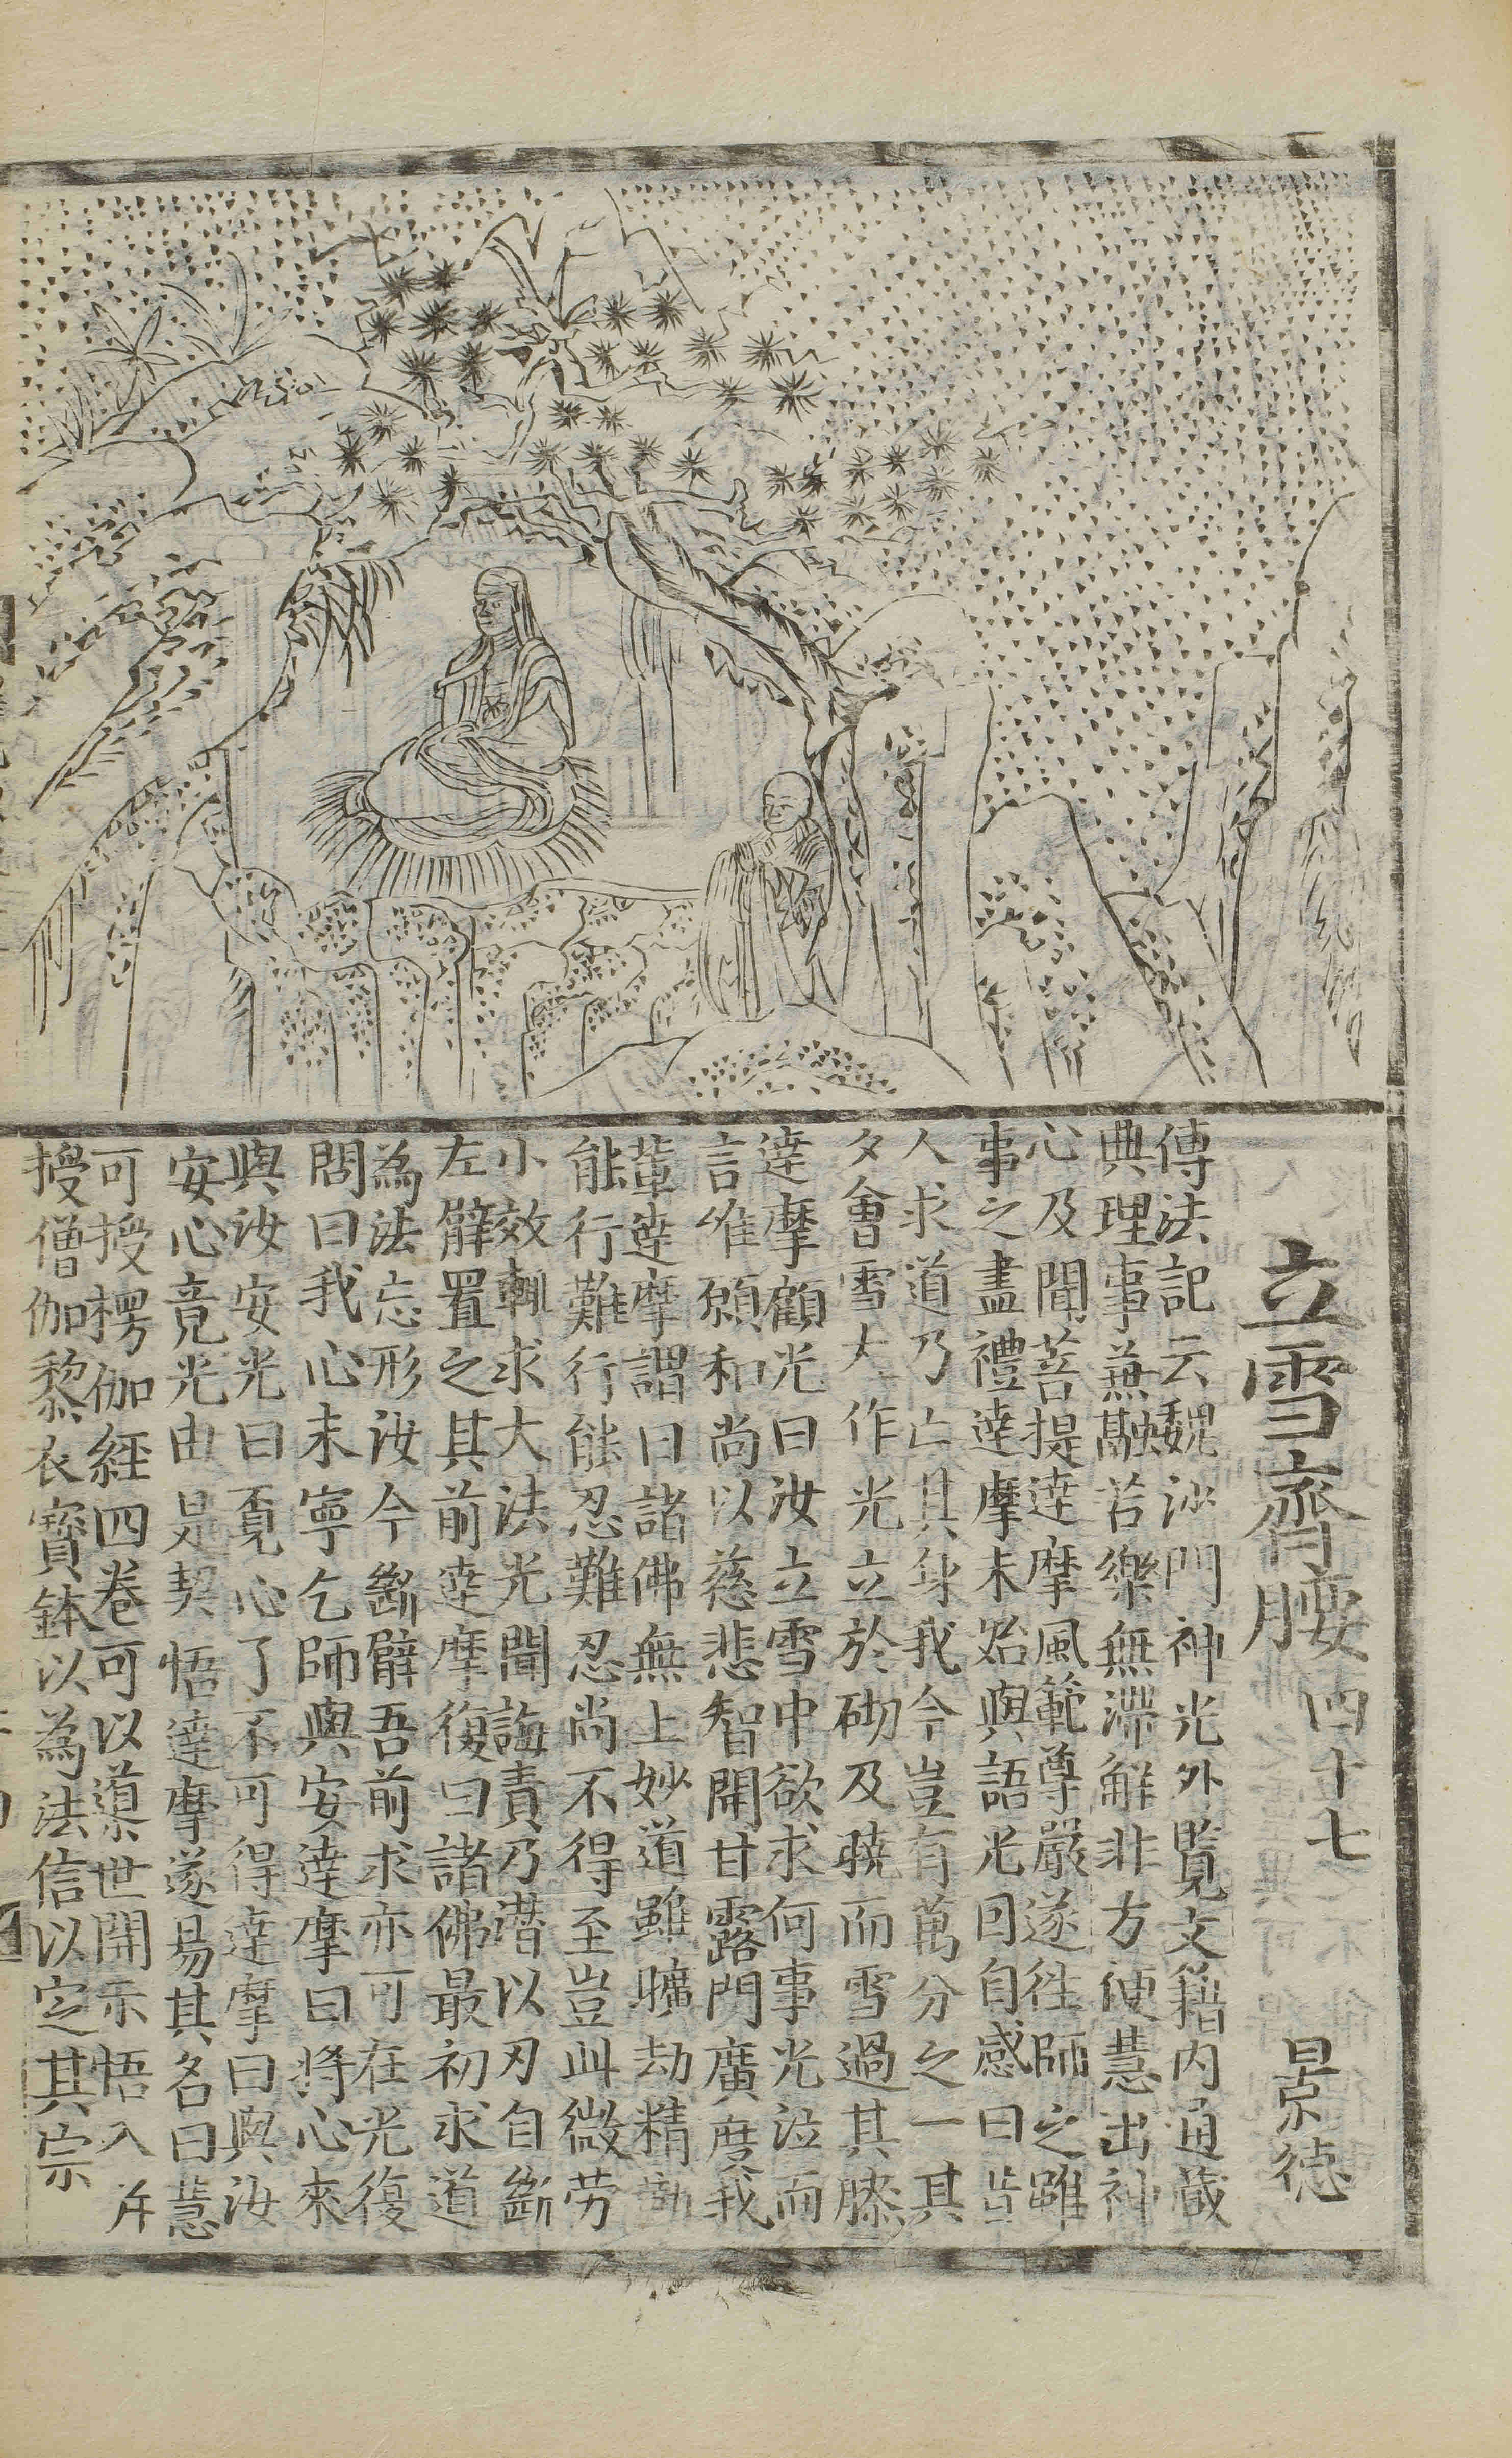 立雪齊腰 四十七 景德
傳法記云魏沙門神光外覽文籍内通藏
典理事兼融苦樂無滯解非方便慧出神
心及聞菩提達摩風範尊嚴遂往師之雖
事之盡禮達摩未始與語光因自感曰昔
人求道乃亡其身我今豈有萬分之一其
夕會雪大作光立於砌及曉而雪過其膝
達摩顧光曰汝立雪中欲求何事光泣而
言唯願和尚以慈悲智開甘露門廣度我
輩達摩謂曰諸佛無上妙道雖曠劫精勤
能行難行能忍難忍尚不得至豈此微劳
小效輙求大法光聞誨責乃潛以刃自斷
左臂置之其前達摩復曰諸佛最初求道
為法忘形汝今斷臂吾前求亦可在光復
問曰我心未寧乞師與安達摩曰將心來
與汝安光曰覓心了不可得達摩曰與汝
安心竟光由是契悟達摩遂易其名曰慧
可授楞伽經四卷可以導世開示悟入并
授僧伽黎衣寳鉢以為法信以定其宗